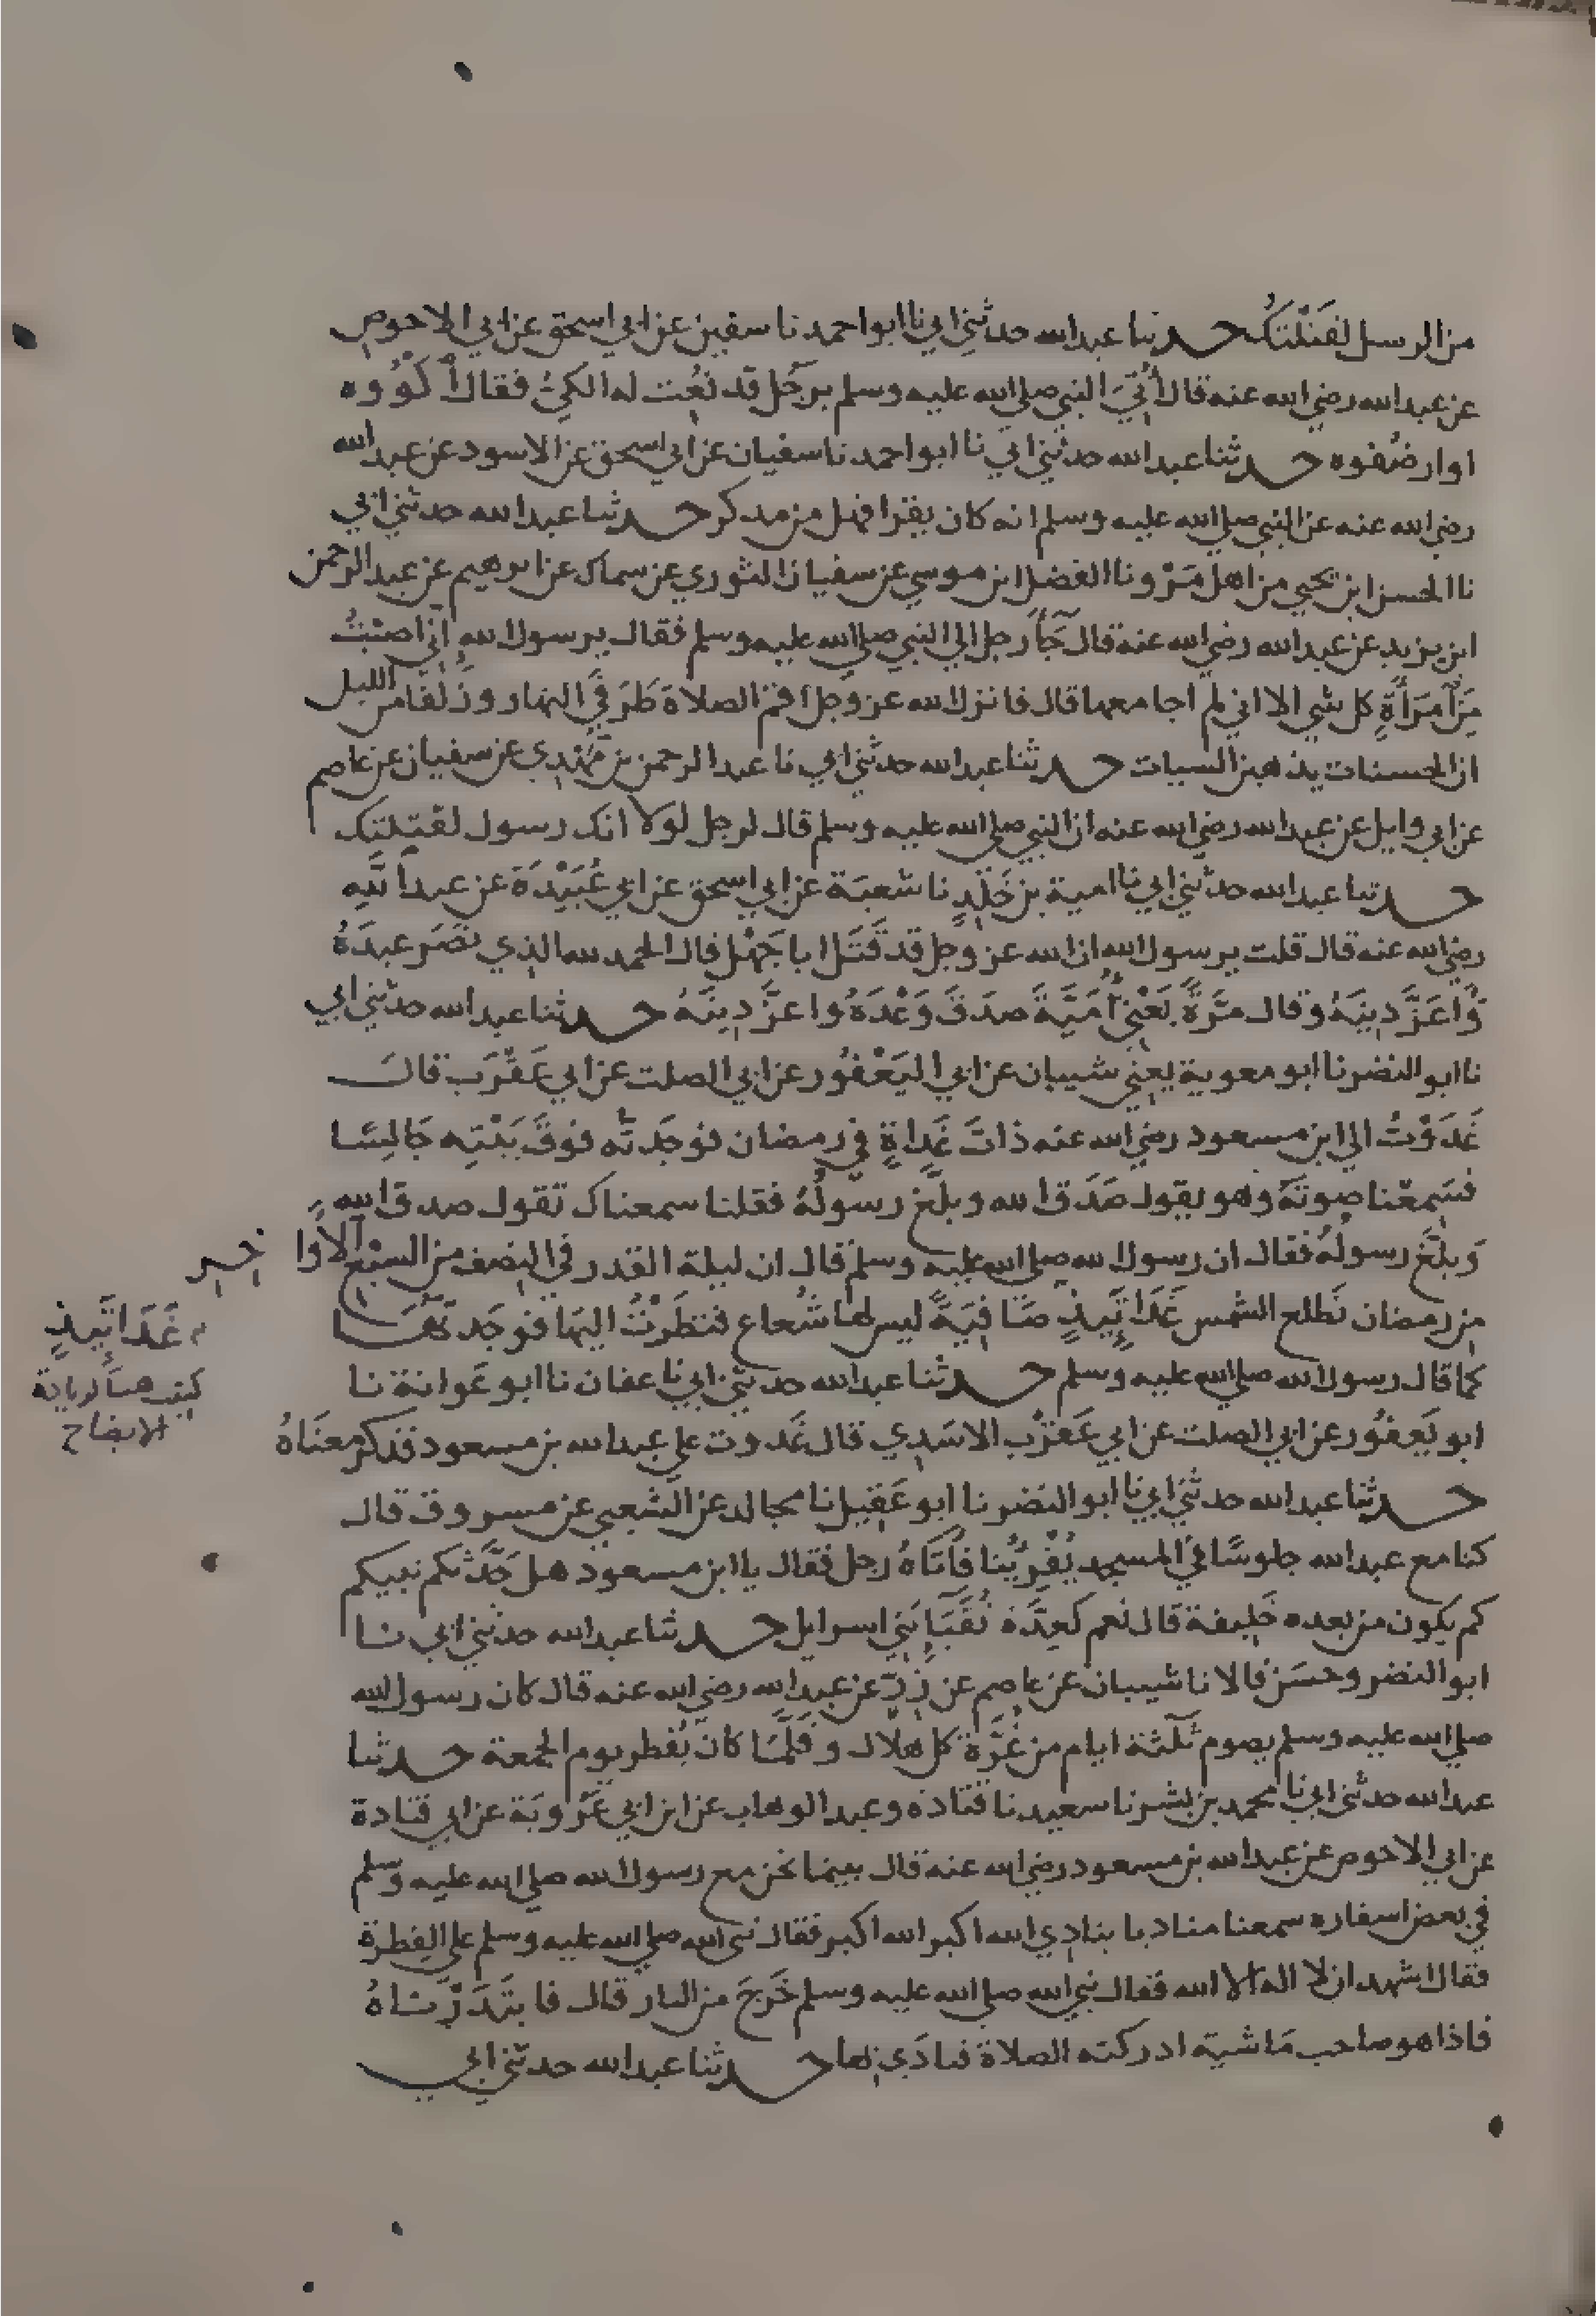 من الرسل لقتلتك حدثنا عبد الله حدثني ابي نا ابو احمد نا سفين عن ابي اسحق عن ابي الاحوص
عن عبد الله رضي الله عنه قال أُتِيَ النبي صلي الله عليه وسلم برَجُل قد نُعِت له الكيُّ فقال أكْوُوه
اوارضُفوه حدثنا عبد الله حدثني ابي نا ابو احمد نا سفيان عن ابي اسحق عن الاسود عن عبد الله
رضي الله عنه عن النبي صلي الله عليه وسلم انه كان يقرا فهل من مدكر حدثنا عبد الله حدثني ابي
نا الحسن ابن يحيي من اهل مَرْو نا الفضل ابن موسي عن سفيان الثوري عن سماك عن ابرهيم عن عبد الرحمن
ابن يزيد عن عبد الله رضي الله عنه قال جَآ رجل الي النبي صلي الله عليه وسلم فقال يرسول الله إني اصبْتُ
مِن آمرَأَةٍ كل شي الا اني لم اجامعها قال فانزل الله عز وجل اقم الصلاة طرَفَي النهار وزُلَفًا من الليل
ان الحسنات يذهبن السيات حدثنا عبد الله حدثني ابي نا عبد الرحمن بن مَهْدِي عن سفيان عن عاصم
عن ابي وايل عن عبد الله رضي الله عنه ان النبي صلي الله عليه وسلم قال لرجل لولا انك رسول لقتلتك
حدثنا عبد الله حدثني ابي نا امية بن خَلِدٍ نا شعبَة عن ابي اسحق عن ابي عُبَيْدَة عن عبد اللهِ
رضي الله عنه قال قلت يرسول الله ان الله عز وجل قد قَتَل ابا جَهْل قال الحمد لله الذي نصَر عبدَهُ
وَاعَزَّ دِينَهُ وقال مَرَّةً يَعْنِي أُمَيَّةَ صَدَقَ وَعْدَهُ واعَزَّ دِينَهُ حدثنا عبد الله حدثني ابي
نا ابو النضر نا ابو معوية يعني شيبان عن ابي اليَعْفُور عن ابي الصلت عن ابي عَقْرَب قال
غَدَوْتُ الي ابن مسعود رضي الله عنه ذاتَ غَداةٍ في رمضان فوجَدتُه فوقَ بَيْتِه جَالِسًا
فسَمِعْنا صوتَهُ وهو يقول صَدَقَ الله وبلَّغ رسولُهُ فقلنا سمعناك تقول صدق الله
وَبلَّغ رسولُهُ فقال ان رسول الله صلي الله عليه وسلم قال ان ليلة القدر في النِصف من السبْعِ الأوا خِرِ
من رمضان تَطلع الشمس غَدَاتَيِذٍ صَافِيَةً ليس لها شُعاع فنظَرْتُ اليها فوجَدتُهَا
كما قال رسول الله صلي الله عليه وسلم حدثنا عبد الله حدثني ابي نا عفان نا ابو عَوانة نا
ابو يَعفُور عن ابي الصلت عن ابي عَقرَب الاسَدِي قال غَدوت علي عبد الله بن مسعود فذكر معنَاهُ
حدثنا عبد الله حدثني ابي نا ابو النضر نا ابو عَقِيل نا مجالد عن الشعبي عن مسروق قال
كنا مع عبد الله جلوسًا في المسجد يُقْرِئُنا فأتَاهُ رجل فقال يا ابن مسعود هل حَدَّثكم نبيكم
كم يكون من بعده خَلِيفة قال نعم كعِدَّة نُقَبَآءِ بَنِي اسرايل حدثنا عبد الله حدثني ابي نا
ابو النضر وحسَن قالا نا شيبان عن عاصم عن زِرّ عن عبد الله رضي الله عنه قال كان رسول الله
صلي الله عليه وسلم يصوم ثَلثة ايام من غُرَّة كل هلال وقَلَّمَا كان يُفطر يوم الجمعة حدثنا
عبد الله حدثني ابي نا محمد بن بشر نا سعيد نا قتادة وعبد الوهاب عن ابن ابي عَرُوبَة عن ابي قتادة
عن ابي الاحوص عن عبد الله بن مسعود رضي الله عنه قال بينما نحن مع رسول الله صلي الله عليه وسلم
في بعض اسفاره سمعنا مناديا ينادي الله اكبر الله اكبر فقال نبي الله صلي الله عليه وسلم علي الفِطرة
فقال اشهد ان لا اله الا الله فقال نبي الله صلي الله عليه وسلم خَرجَ من النار قال فابتَدَرْنَاهُ
فاذا هو صاحب مَاشية ادركته الصلاة فنادَي بها حدثنا عبد الله حدثني ابي
غَدَاتَيِذٍ
كتب هنا لزيادة
الايضاح